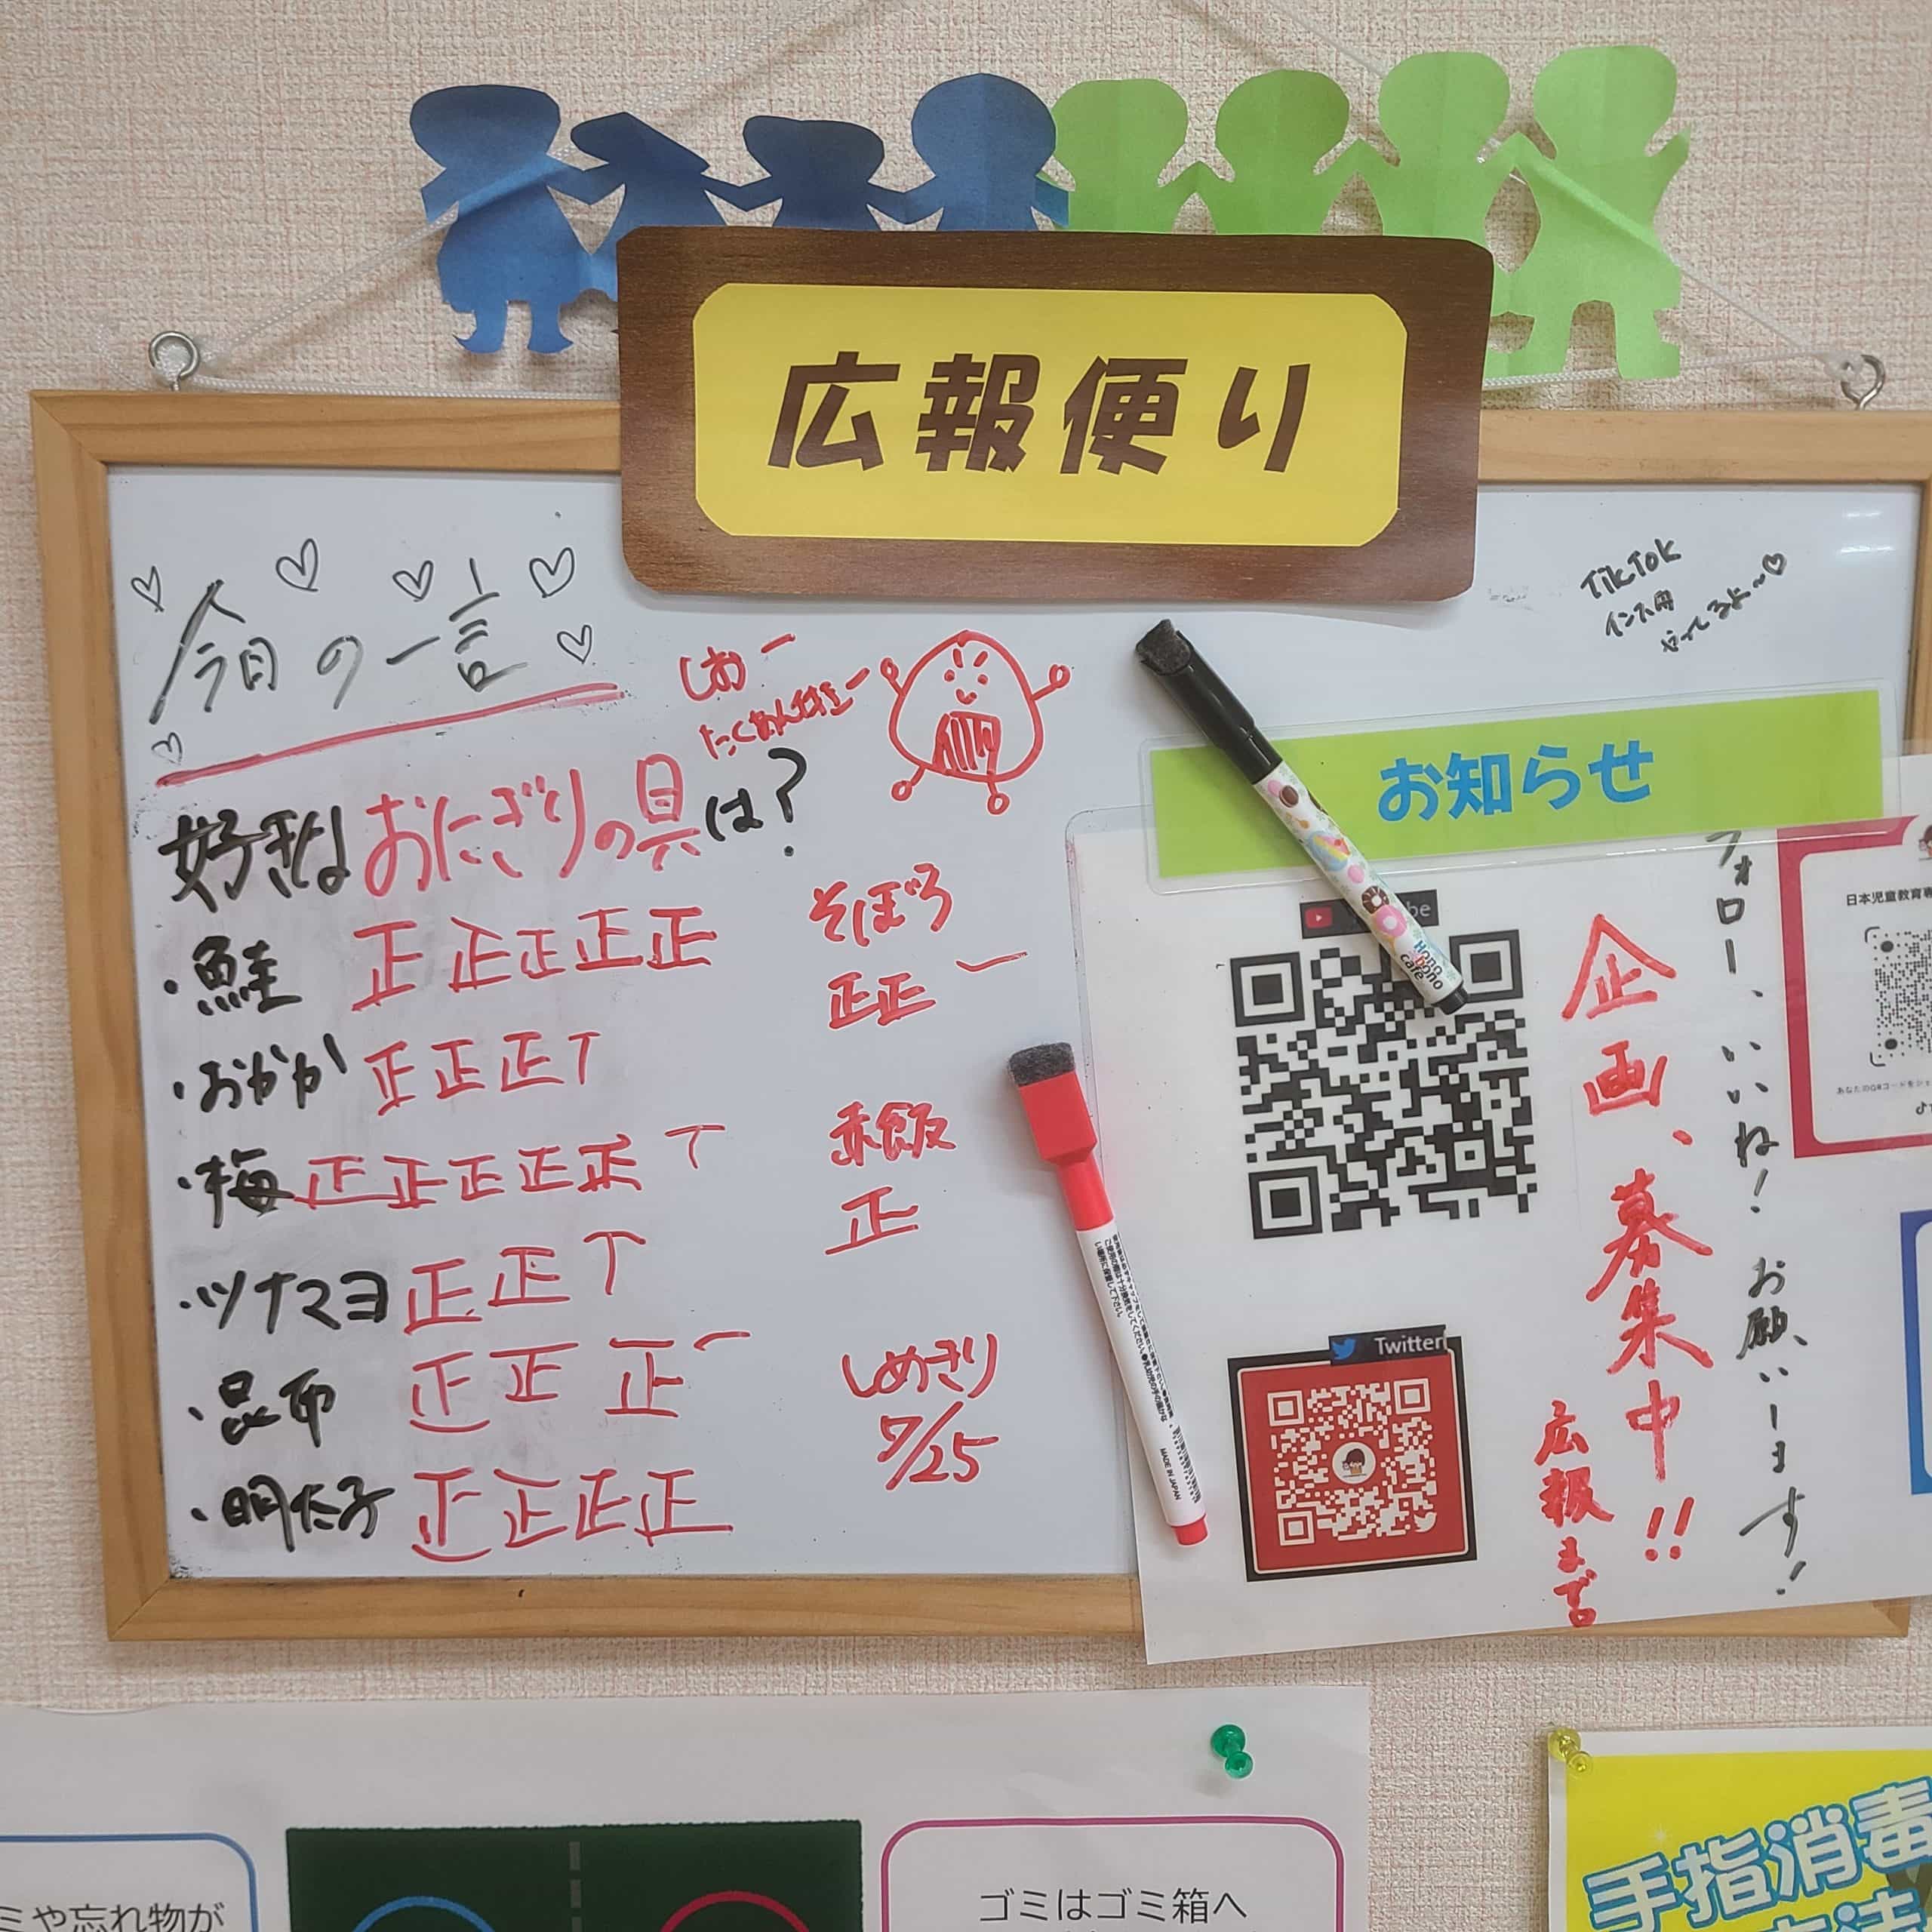 広報便り
今日の一言
しお 一
たくあん 一
好きなおにぎりの具は?
・鮭 正正正正正
・おかか 正正正丅
・梅 正正正正正丅
・ツナマヨ 正正丅
・昆布 正正正一
・明太子 正正正正
そぼろ
正正一
赤飯
正
しめきり
7/25
TikTok
インスタ用
やってるよ~♡
お知らせ
企画、募集中!!
広報まで。
フォロー、いいね!お願いします!
Twitter
Hono
bono
cafe
MADE IN JAPAN
日本児童教育専
ミや忘れ物が
ゴミはゴミ箱へ
手指消毒